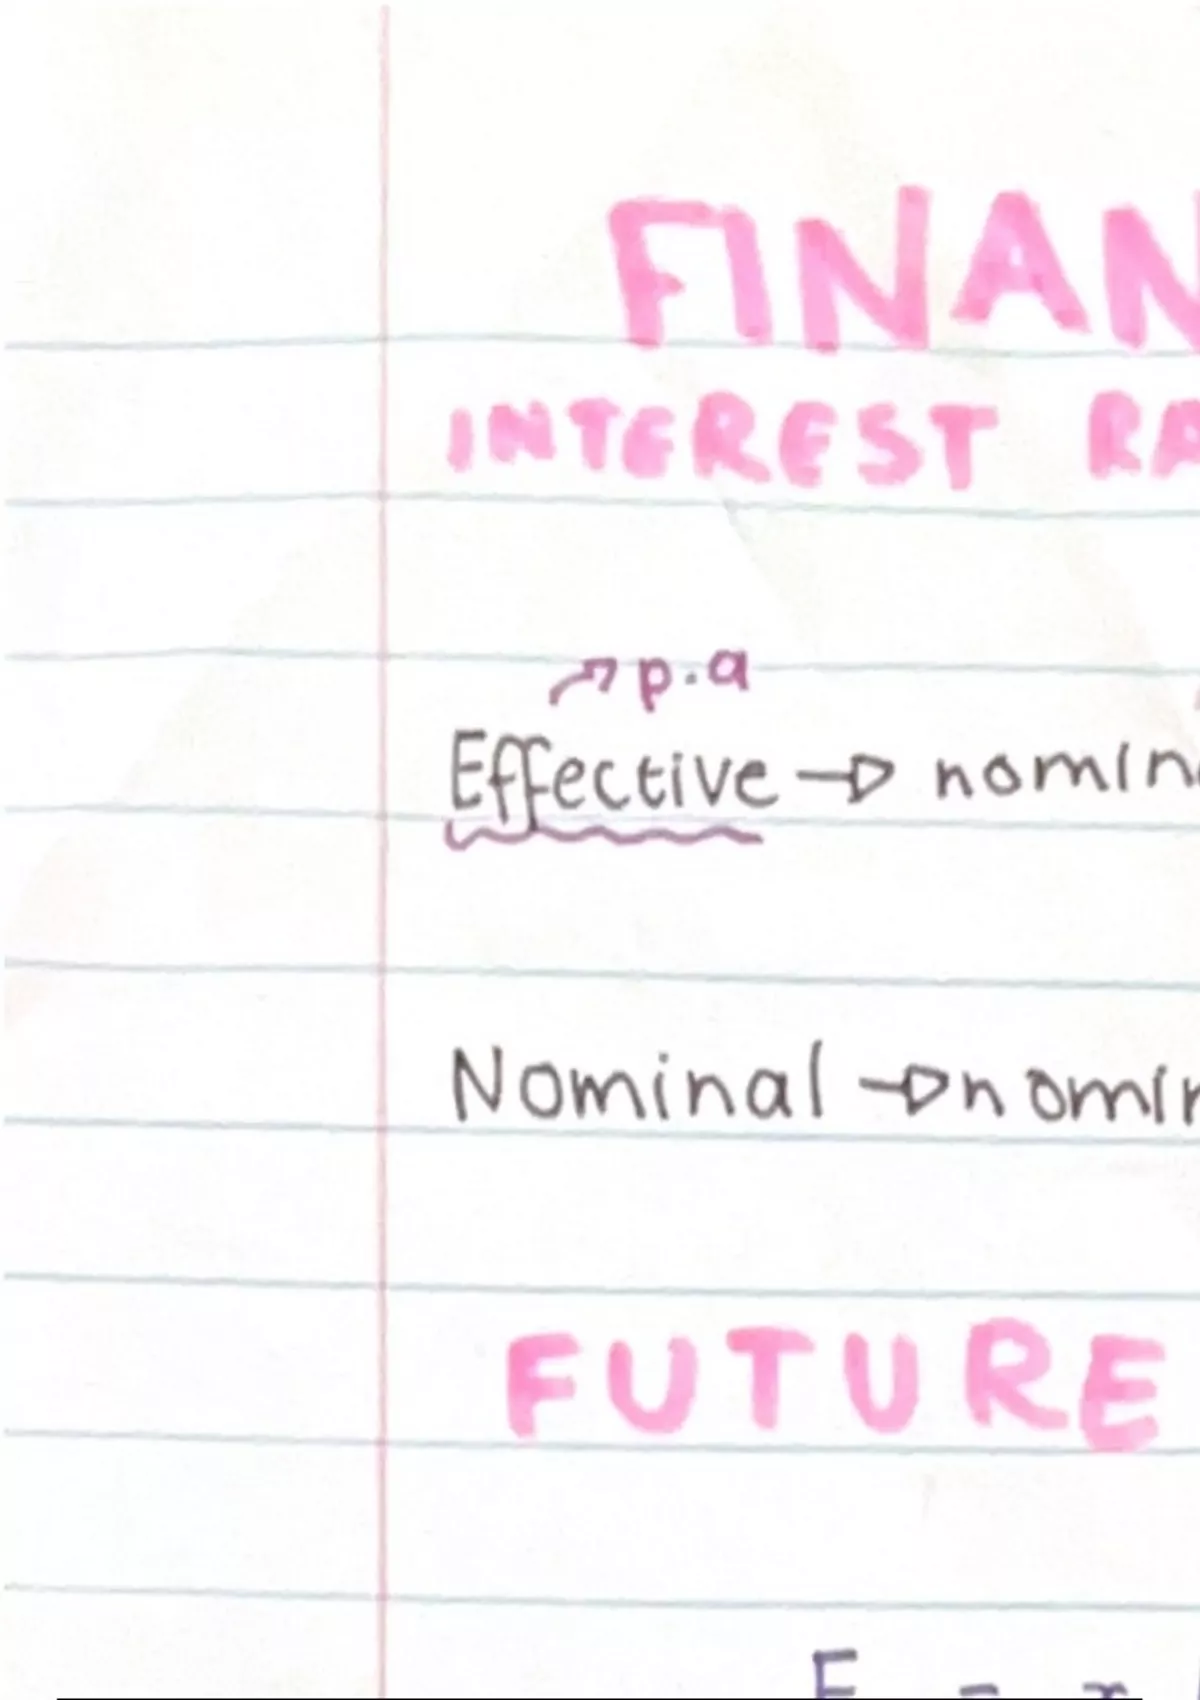 FINAN
INTEREST RA
p.a
Effective → nomin
Nominal → nomin
FUTURE
F = x